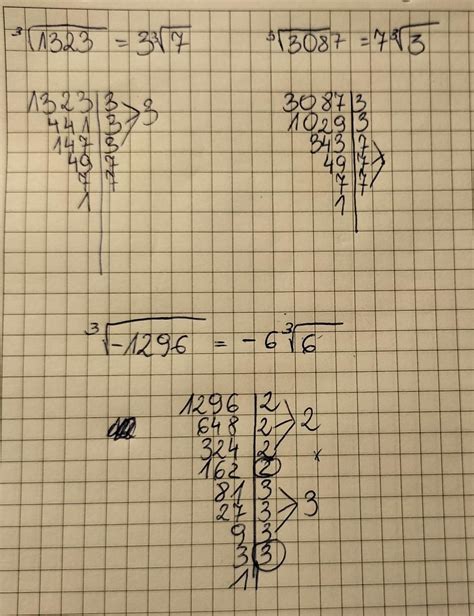 ∛1323 = 3∛7
∛3087 = 7∛3
1323 | 3
441 | 3 > 3
147 | 3
49 | 7
7 | 7
1
3087 | 3
1029 | 3
343 | 7
49 | 7
7 | 7
1
∛-1296 = -6∛6
1296 | 2
648 | 2 > 2
324 | 2
162 | 2
81 | 3
27 | 3 > 3
9 | 3
3 | 3
1